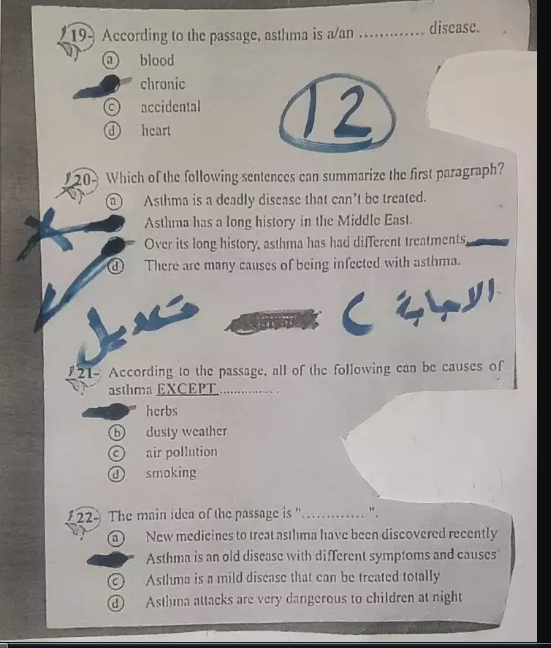 19- According to the passage, asthma is a/an .............. disease.
a blood
chronic
c accidental
d heart
12
20- Which of the following sentences can summarize the first paragraph?
a Asthma is a deadly disease that can't be treated.
Asthma has a long history in the Middle East.
Over its long history, asthma has had different treatments.
d There are many causes of being infected with asthma.
الاجابة
تعديل
21- According to the passage, all of the following can be causes of
asthma EXCEPT.............. .
herbs
b dusty weather
c air pollution
d smoking
22- The main idea of the passage is "............. ".
a New medicines to treat asthma have been discovered recently
Asthma is an old disease with different symptoms and causes
c Asthma is a mild disease that can be treated totally
d Asthma attacks are very dangerous to children at night